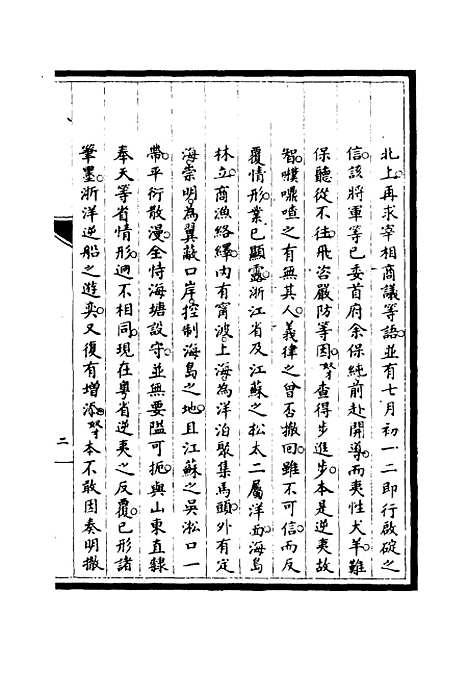 北上再求宰相商議等語並有七月初一二即行啟碇之
信該將軍等已委首府余保純前赴開導而夷性犬羊難
保聽從不往飛咨嚴防等因奴才查得步進步本是逆夷故
智噗嚊喳之有無其人義律之曾否撤回雖不可信而反
覆情形業已顯露浙江省及江蘇之松太二屬洋面海島
林立商漁絡繹內有甯波上海為洋泊聚集馬頭外有定
海崇明為翼蔽口岸控制海島之地且江蘇之吳淞口一
帶平衍散漫全恃海塘設守並無要隘可扼與山東直隸
奉天等省情形迥不相同現在粵省逆夷之反覆已形諸
筆墨浙洋逆船之遊奕又復有增添奴才本不敢因奏明撤
二